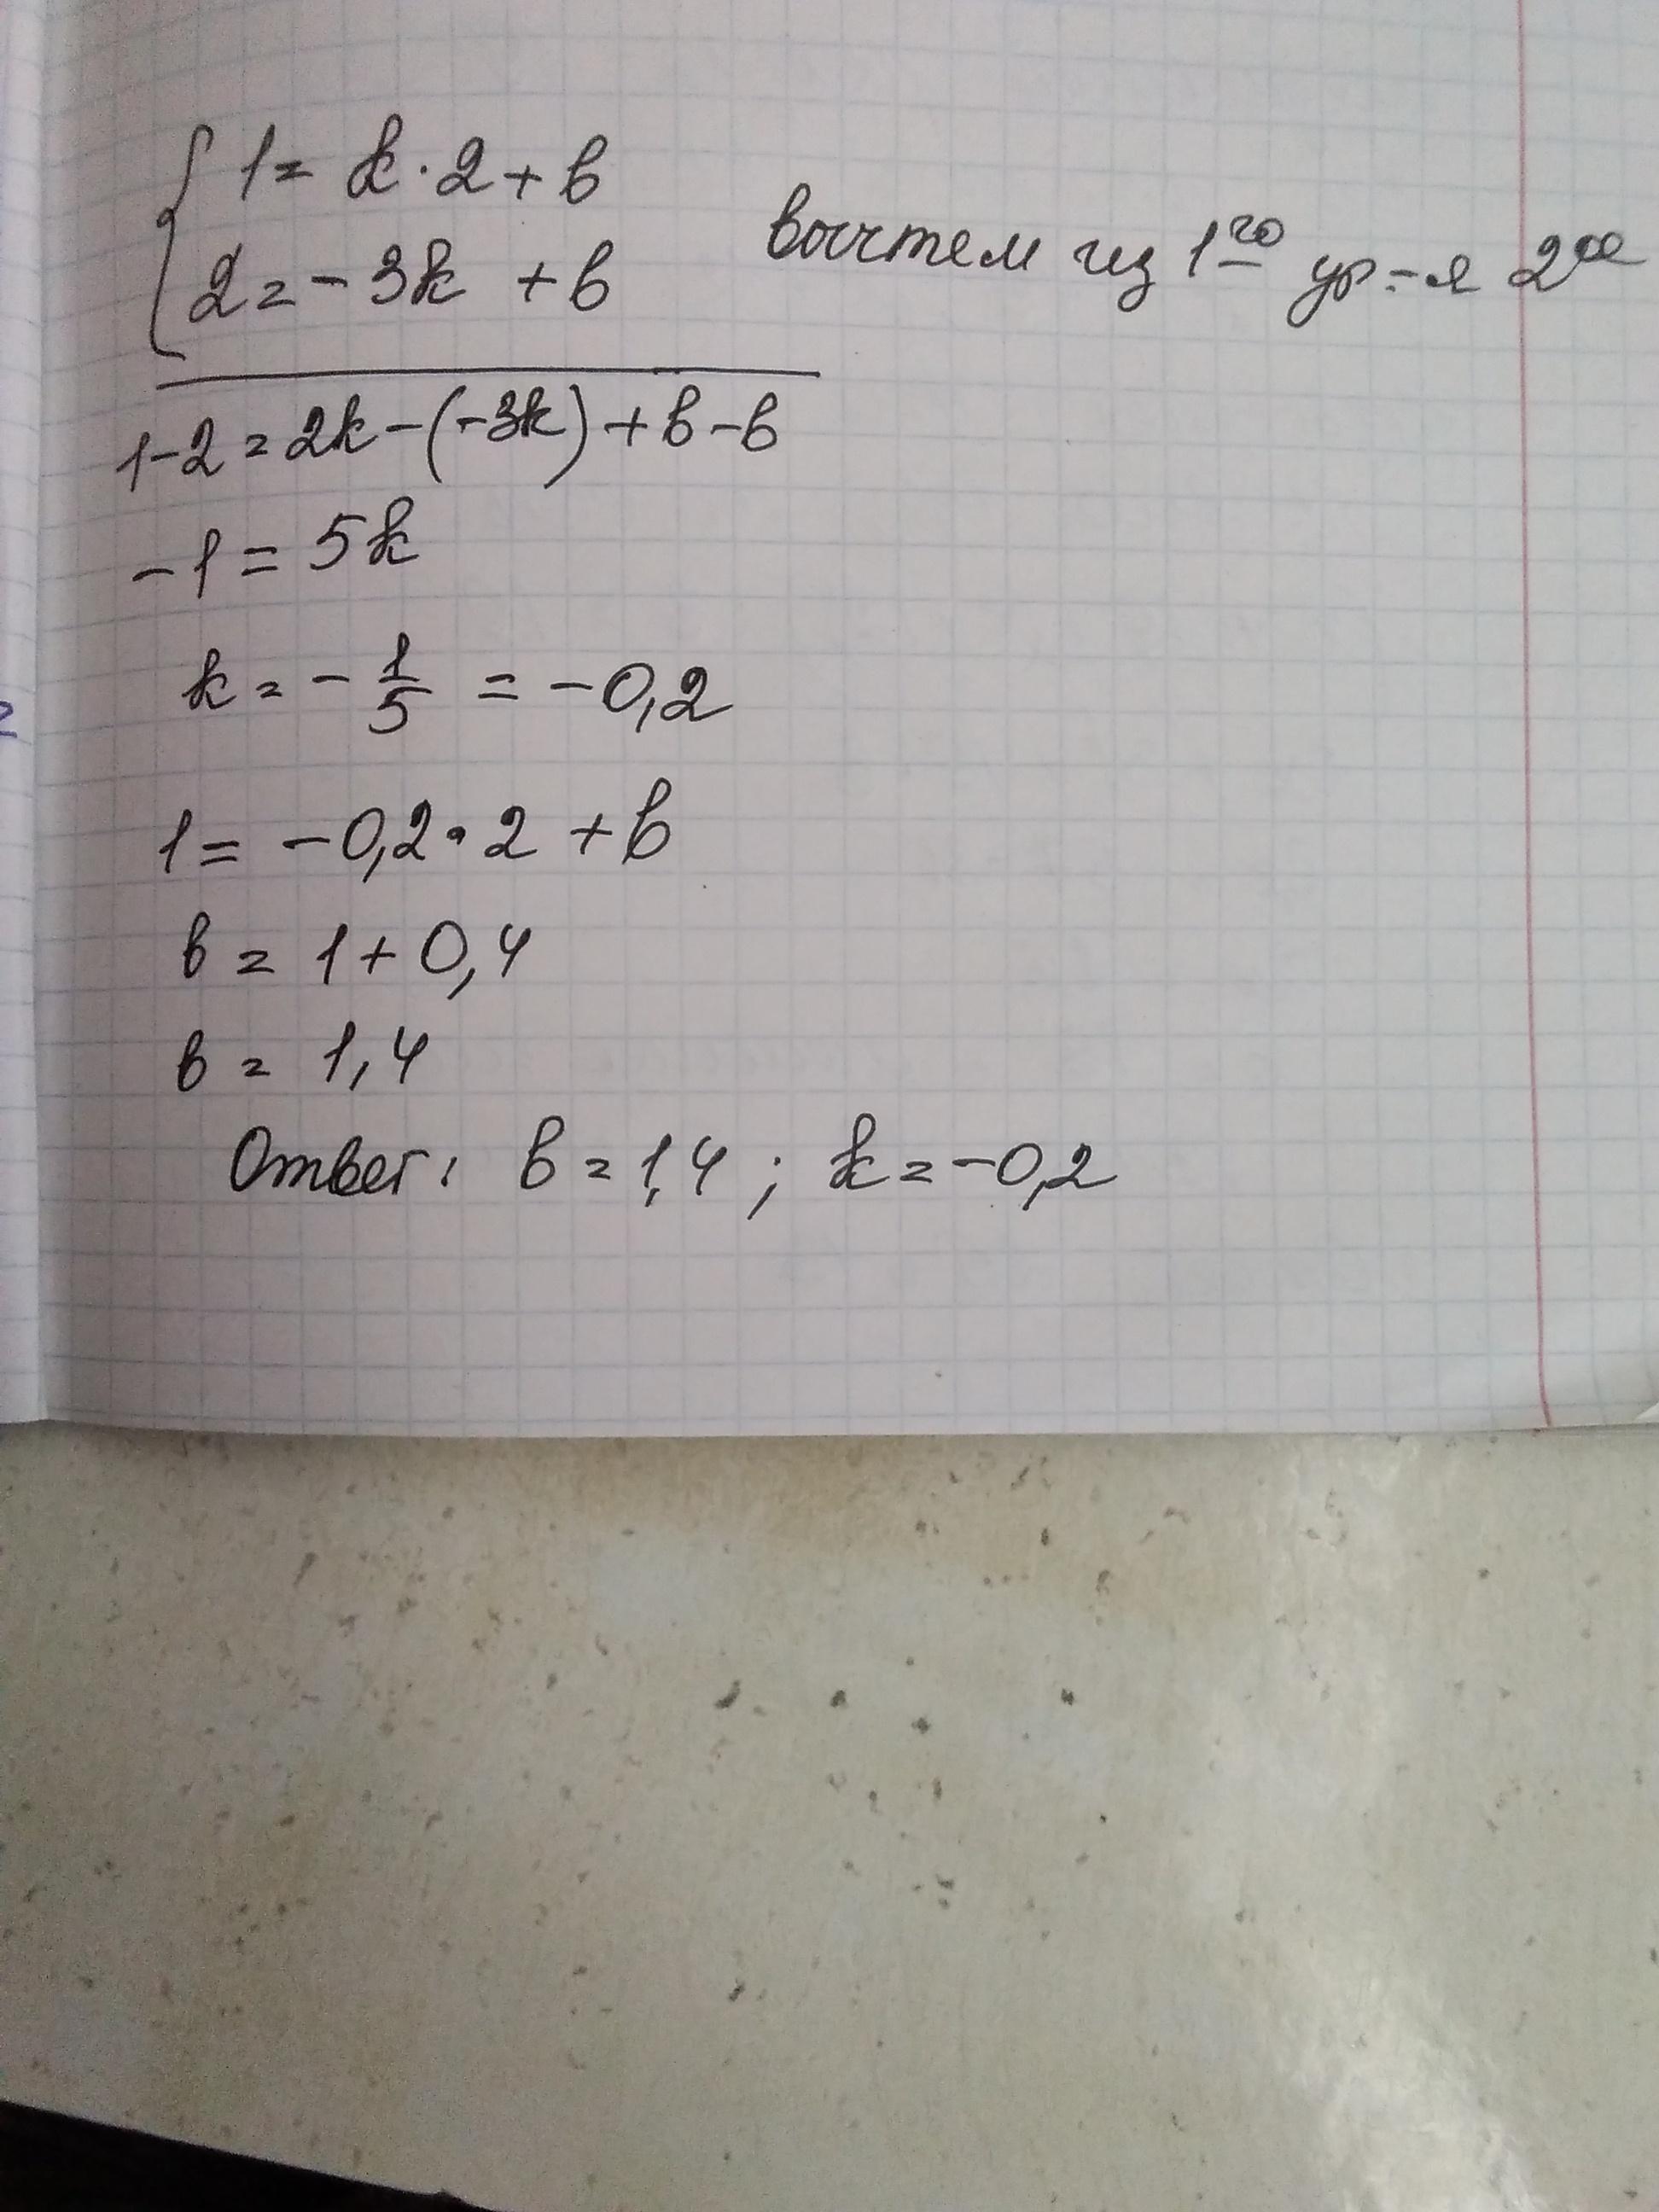 1 = k · 2 + в
2 = - 3k + в
вычтем из 1го ур-я 2ое
1-2 = 2k - (-3k) + в - в
-1 = 5k
k = - 1/5 = -0,2
1 = -0,2 · 2 + в
в = 1 + 0,4
в = 1,4
Ответ: в = 1,4 ; k = -0,2